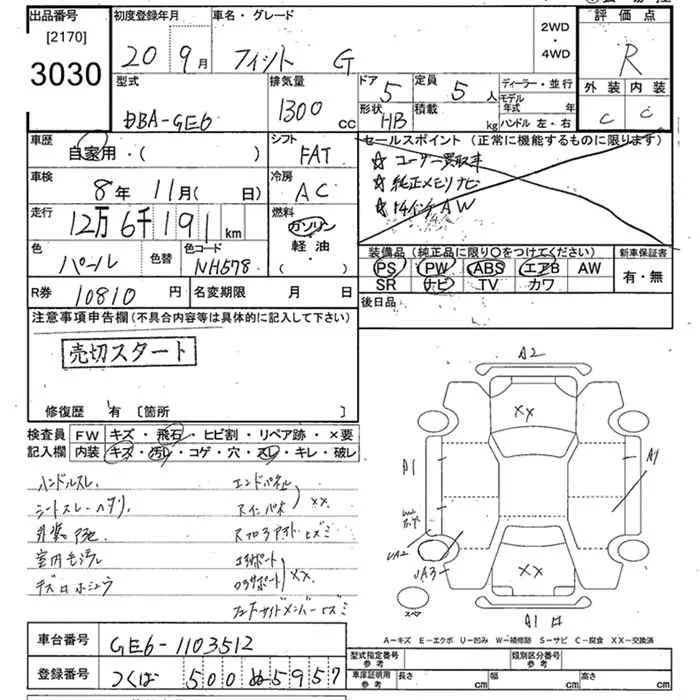 出品番号
[2170]
3030
初度登録年月
20年 9月
車名・グレード
フィット G
2WD
・
4WD
評価点
R
外装 内装
C C
型式
DBA-GE6
排気量
1300 cc
ドア 5
定員 5 人
形状 HB
積載 kg
ディーラー・並行
モデル年式 年
ハンドル 左・右
車歴
自家用・( )
シフト
FAT
セールスポイント (正常に機能するものに限ります)
☆ ユーザー買取車
☆ 純正メモリナビ
☆ 14インチAW
車検
8年 11月( 日)
冷房
AC
走行
12万6千191 km
燃料
ガソリン
軽油
・( )
色
パール
色替
色コード
NH578
装備品 (純正品に限り〇をつけてください)
PS PW ABS エアB AW
SR ナビ TV カワ
新車保証書
有・無
R券 10810 円
名変期限 月 日
後日品
注意事項申告欄(不具合内容等は具体的に記入して下さい)
売切スタート
修復歴 有 [箇所 ]
検査員 FW キズ・飛石・ヒビ割・リペア跡・×要
記入欄 内装 キズ・汚レ・コゲ・穴・スレ・キレ・破レ
ハンドルスレ
シートスレ・ヘタリ
室内モジュール
エンドパネル
XX
XX
A2
XX
A1
A1
UA2
UA3
XX
A1
A-キズ E-エクボ U-凹み W-補修跡 S-サビ C-腐食 XX-交換済
車台番号 GE6-1103512
登録番号 つくば 500 ぬ 5957
型式指定番号
参考
類別区分番号
参考
車庫証明用
参考
長さ cm 幅 cm 高さ cm